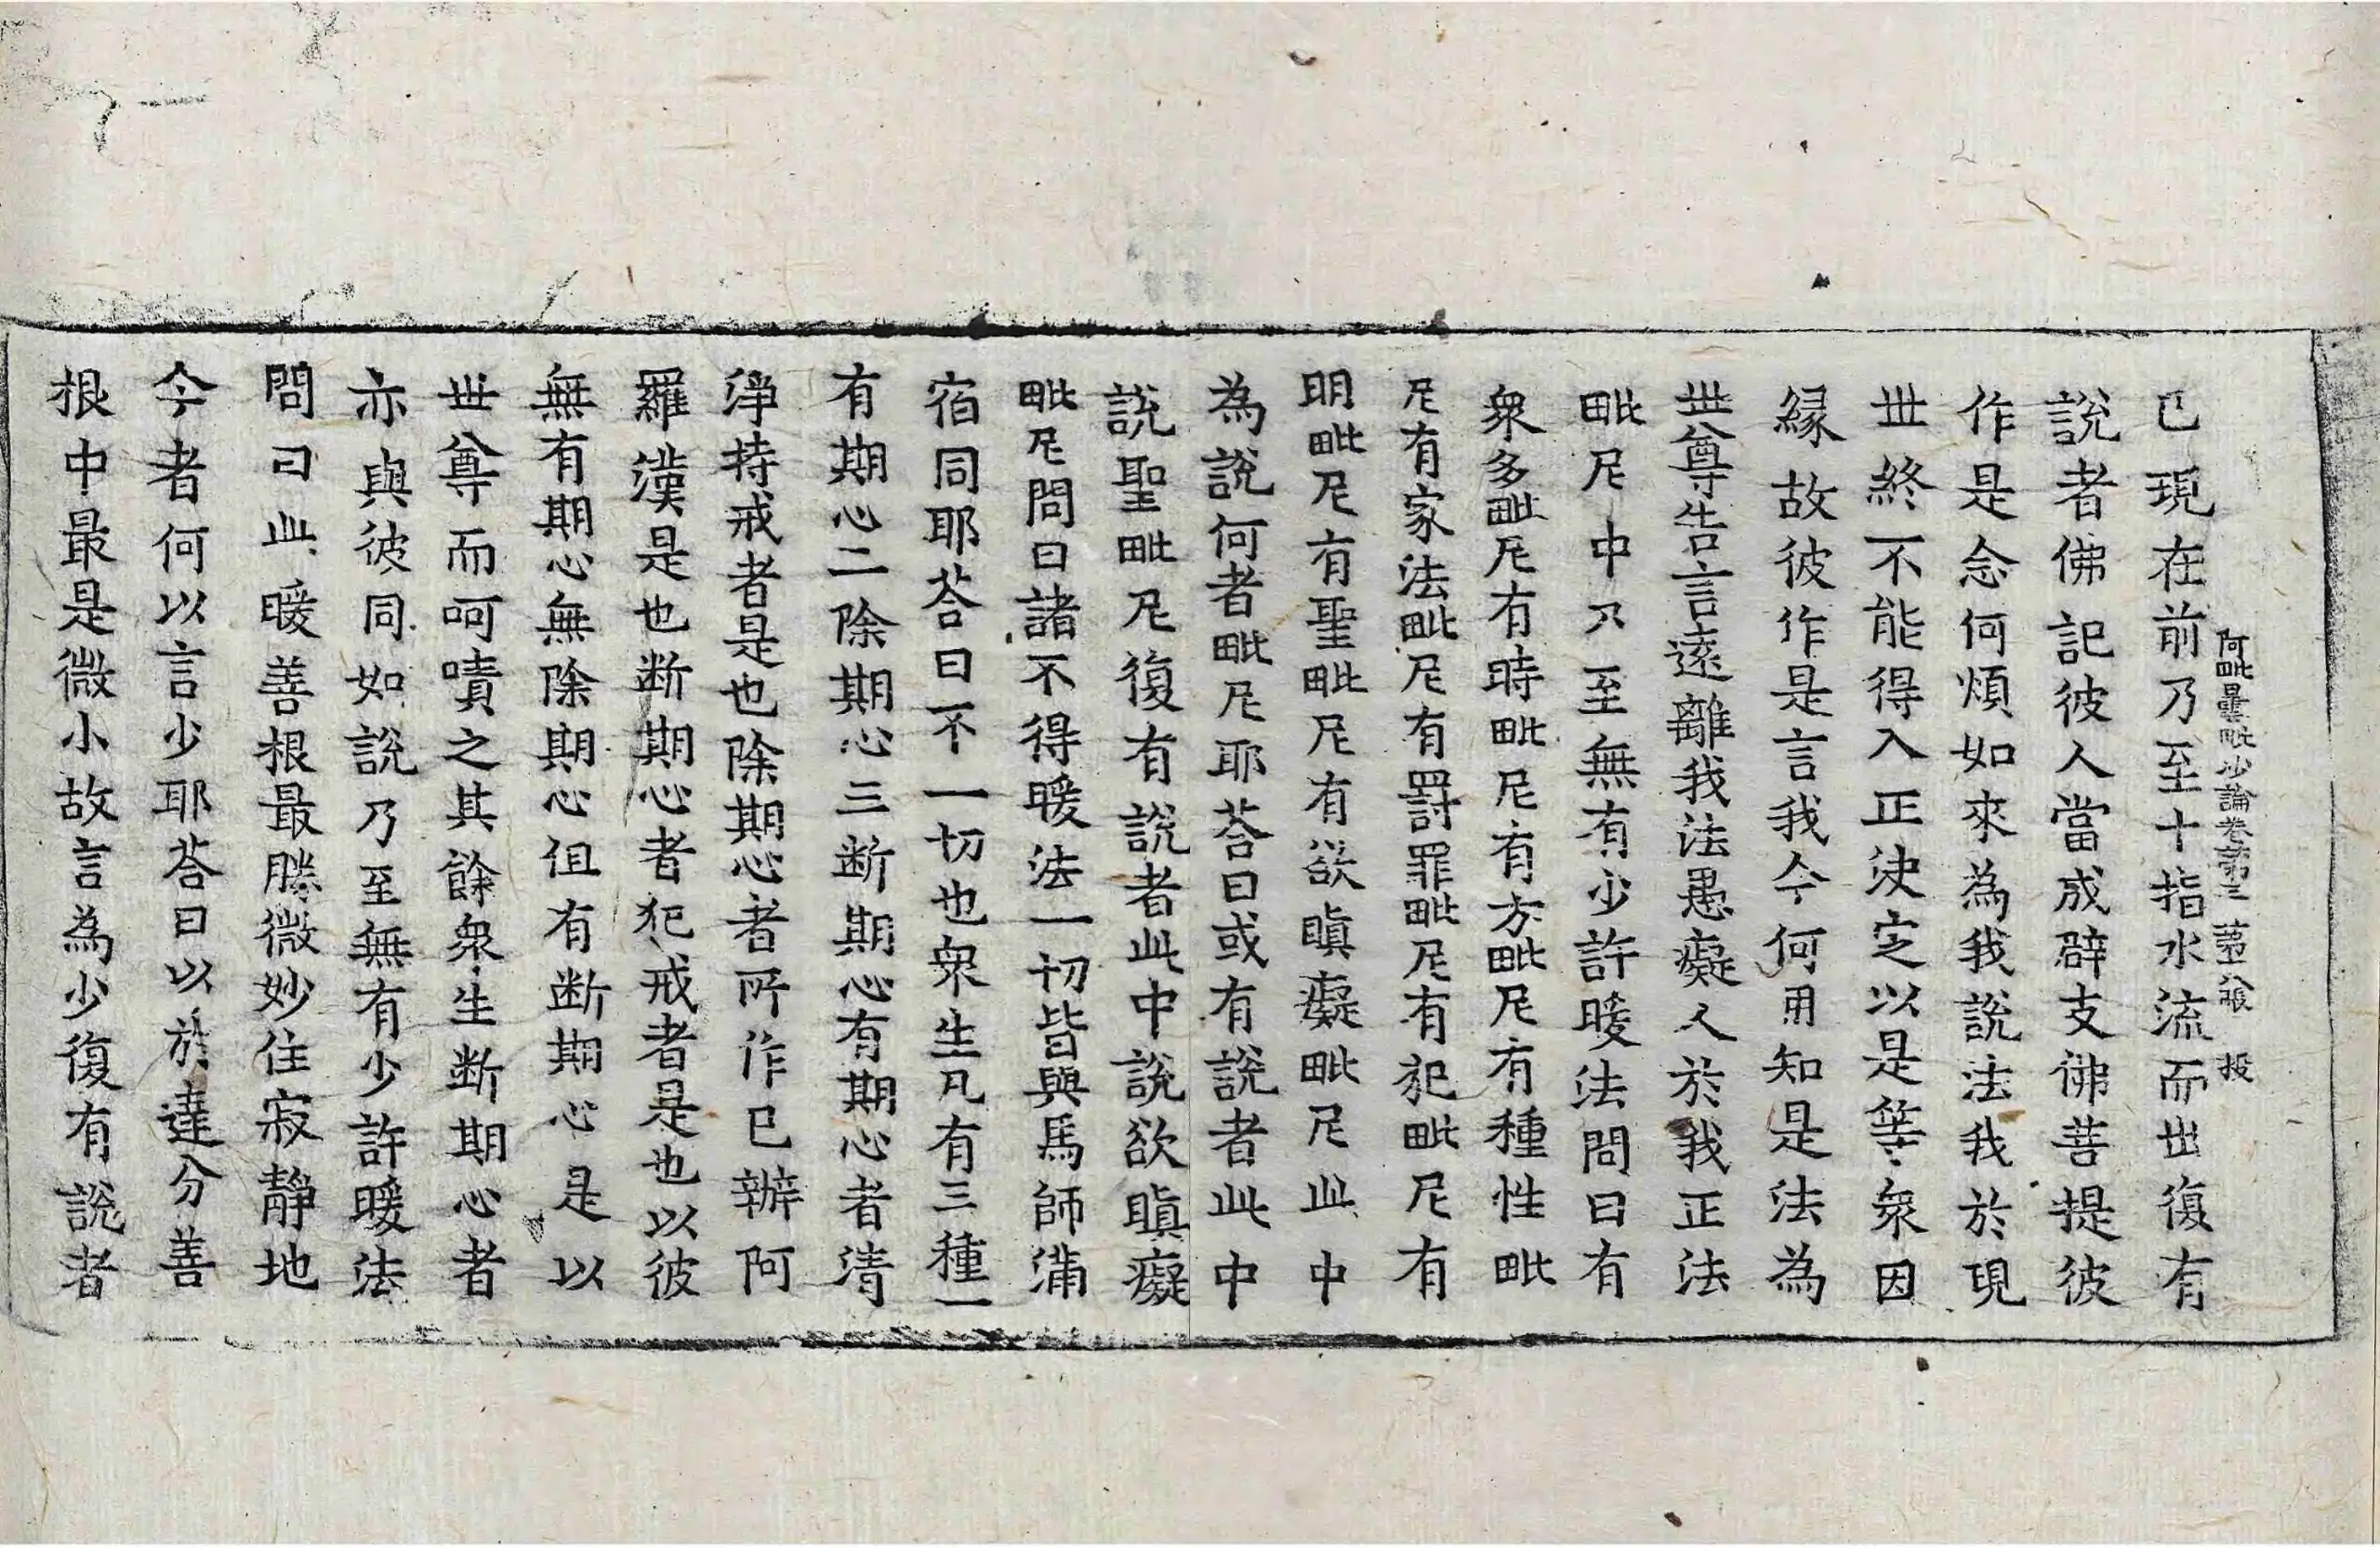 阿毗曇毗沙論卷第三 第八張 投
已現在前乃至十指水流而出復有
說者佛記彼人當成辟支佛菩提彼
作是念何煩如來為我說法我於現
世終不能得入正決定以是等衆因
緣故彼作是言我今何用知是法為
世尊告言遠離我法愚癡人於我正法
毗尼中乃至無有少許暖法問曰有
衆多毗尼有時毗尼有方毗尼有種性毗
尼有家法毗尼有罸罪毗尼有犯毗尼有
明毗尼有聖毗尼有欲瞋癡毗尼此中
為說何者毗尼耶荅曰或有說者此中
說聖毗尼復有說者此中說欲瞋癡
毗尼問曰諸不得暖法一切皆與馬師滿
宿同耶荅曰不一切也衆生凡有三種一
有期心二除期心三断期心有期心者清
淨持戒者是也除期心者所作已辦阿
羅漢是也断期心者犯戒者是也以彼
無有期心無除期心但有断期心是以
世尊而呵嘖之其餘衆生断期心者
亦與彼同如說乃至無有少許暖法
問曰此暖善根最勝微妙住寂靜地
今者何以言少耶荅曰以於達分善
根中最是微小故言為少復有說者